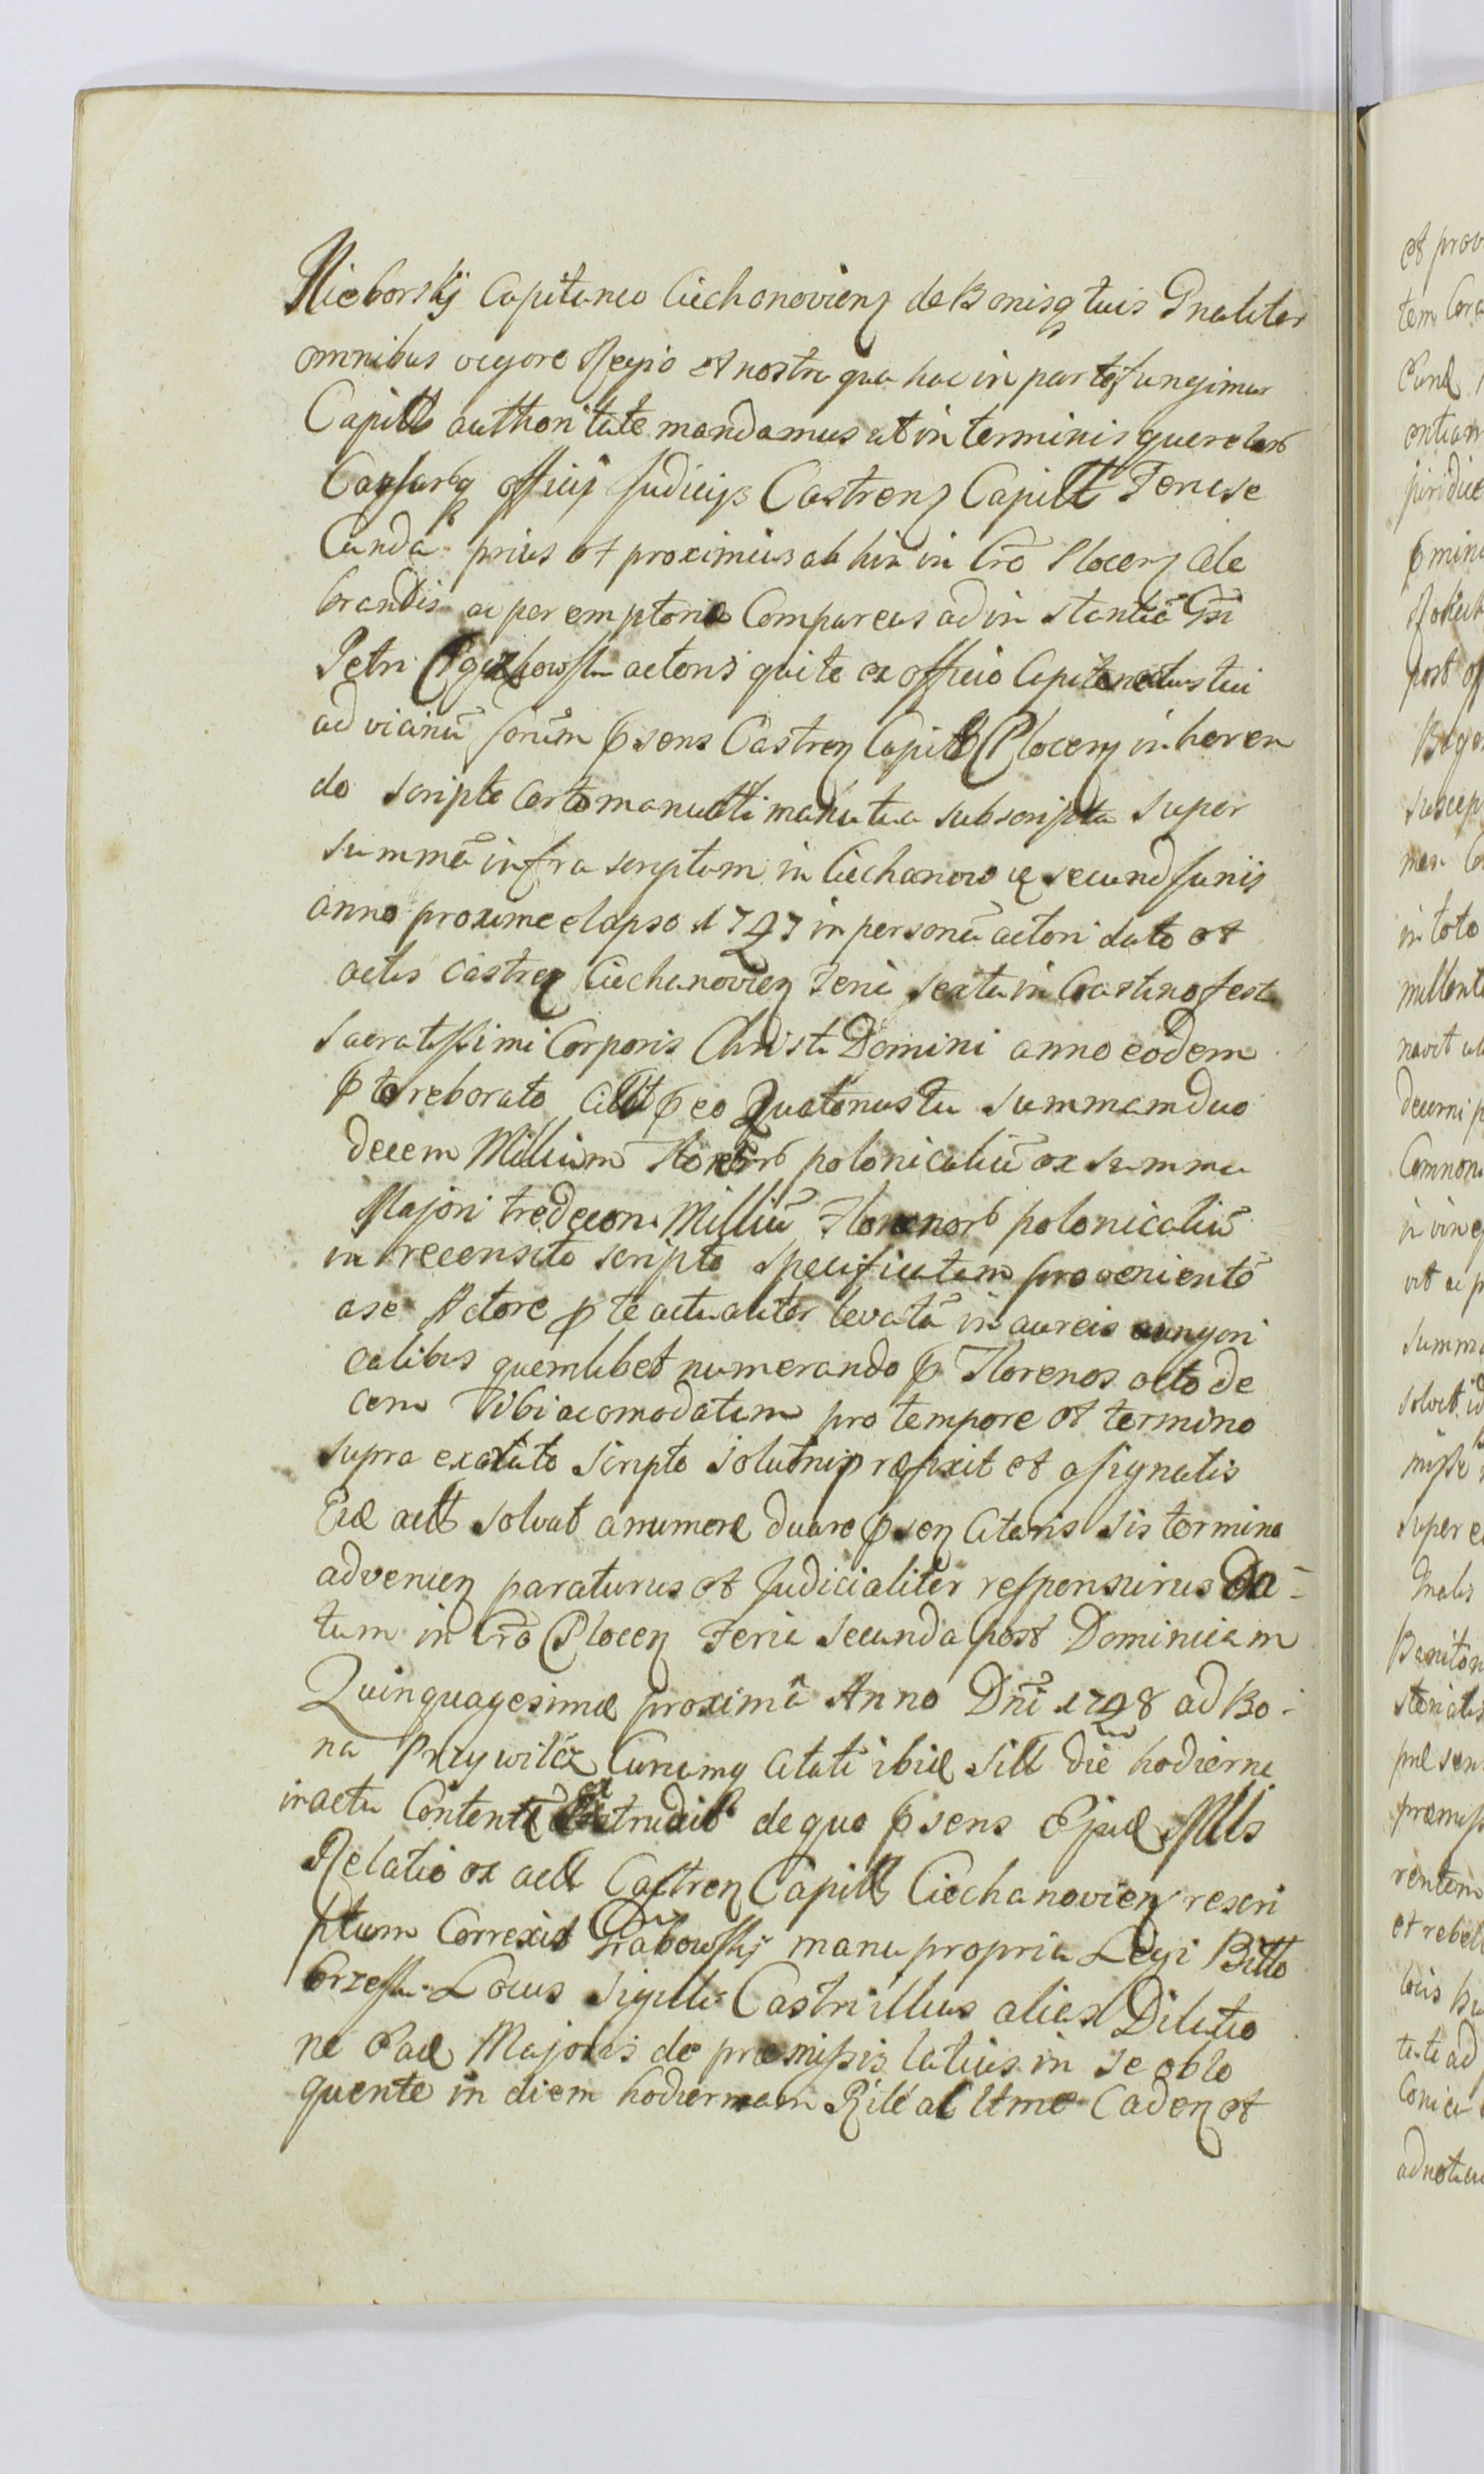 Nieborskij Capitaneo Ciechanovienz de Bonisq tuis Gnaliter
omnibus vigore Regio et nostra qua hac in parte fungimur
Capitt authoritate mandamus ut in terminis querelarb
Causarbq officij Judicijs Castrenz Capitt Feria se
Cunda prius et proximius ab hin in Crō Plocenz Cele
brandis ac peremptorie Compareas ad in stantiā Gsi
Petri actoris qui te ex officio Capitaneatus tui
ad vicinū forūm psens Castrenz Capitt Plocenz in heren
do scripto certo manu tti manu tua subscripto super
summā infra scriptam in Ciechanow secund Junis
anno proxime elapso 1747 in personā actori dato et
actis Castrenz Ciechanovienz Feria sexta in Crastino festi
Sacratissimi Corporis Christi Domini anno eodem
p te roborato citt p eo Quatenus tu summam duo
decem Millium Florenorb polonicaliū ex summa
Majori tredecem Milliū Florenorb polonicaliū
in recensito scripto specificatam provenientē
a se Actore p te actualiter levatā in aureis ungari
calibus quemlibet numerando p Florenos octo de
cem Tibi acomodatam pro tempore et termino
supra exarato scripto solutnis præfixit et asignatis
Eid actt solvat annumere duare psenz Citaris sis termino
advenienz paraturus et Judicialiter responsurus Da=
tum in Crō Plocenz Feria Secunda post Dominicam
Quinquagesimæ proximā Anno Dnī 1748 ad Bo=
na Przywilcz Curiamq Citati ibid sitt die hodierna
in actu Contentā de quo psens Ejud Mtls
Relatio ex actt Castrenz Capitt Ciechanovienz rescri
ptum Correxit Grabowskij manu propria Legi Bitto
brzeski Locus Sigilli Castri illius alias Dilatio
ne Ead Majoris de præmissis latius in se oblo
quente in diem hodiernam Rité ac Ltme Cadenz et
et prov
tem Cora
Eund
entiam
juridice
post off
suscep
in toto
millenti
navit
decerni p
summa
solvit id
super e
Gnalis
steriales
præmiss
rentem
et rebell
te ad
adnotav